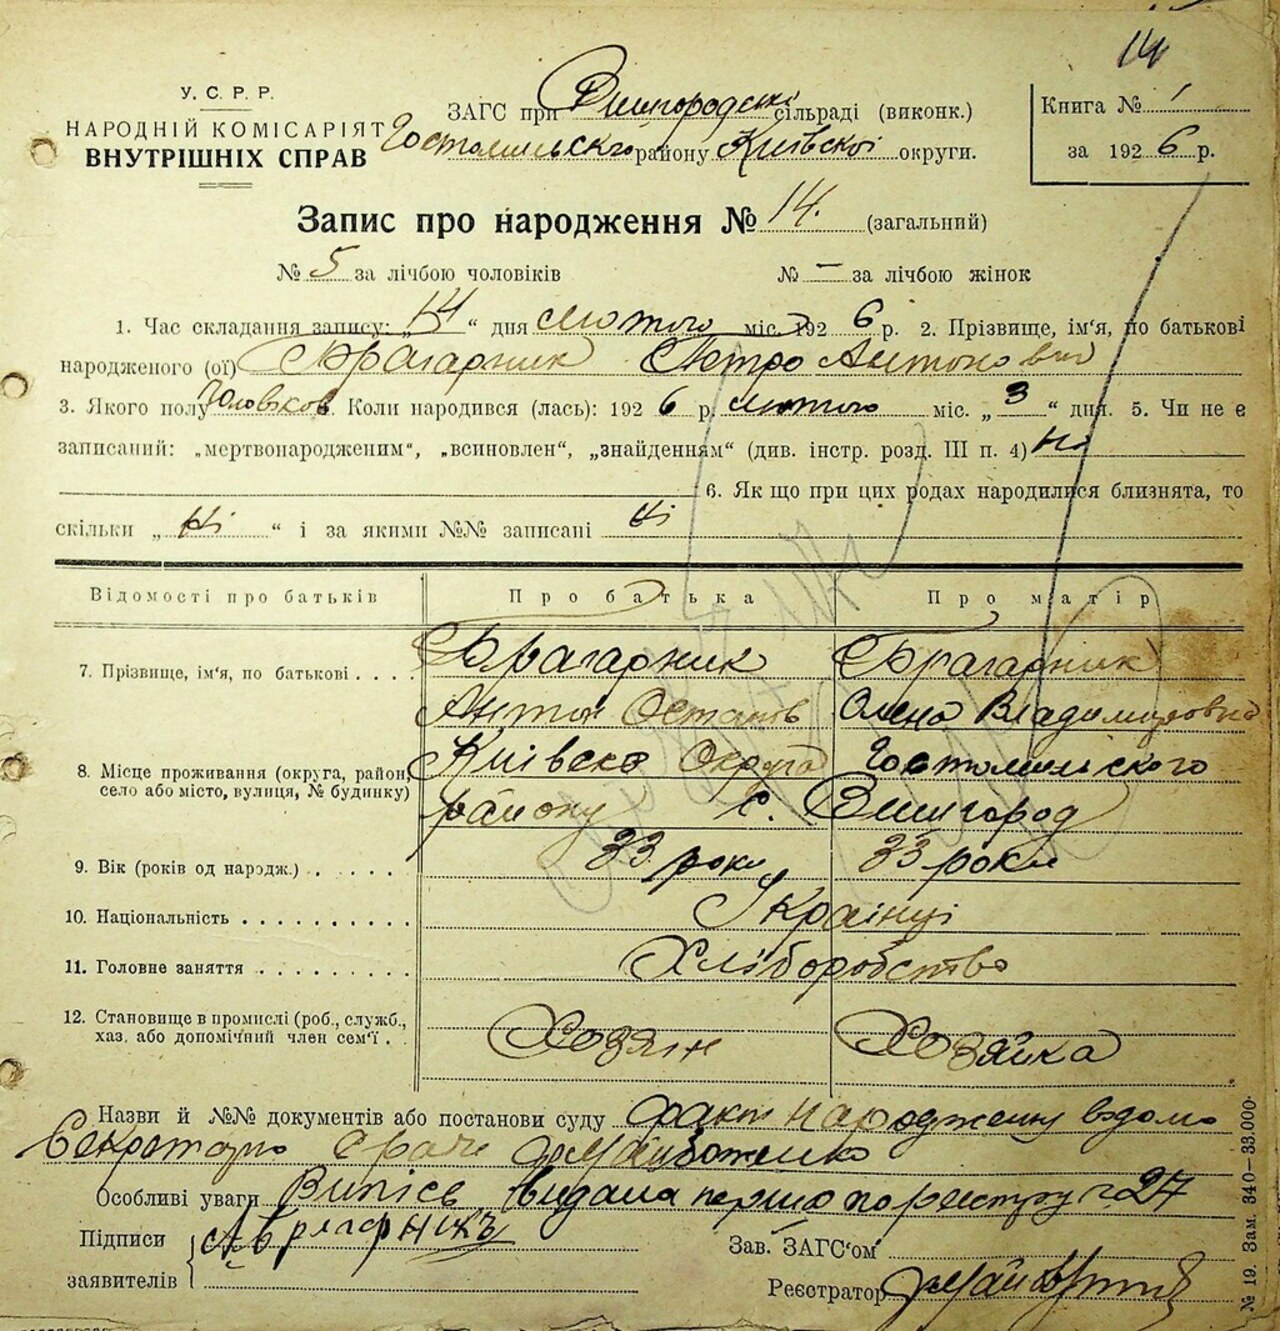 14
У. С. Р. Р.
НАРОДНІЙ КОМІСАРІЯТ
ВНУТРІШНІХ СПРАВ
ЗАГС при Вишгородські сільраді (виконк.)
Гостомильського району Київскої округи.
Книга № 1
за 1926 р.
Запис про народження № 14. (загальний)
№ 5 за лічбою чоловіків № — за лічбою жінок
1. Час складання запису: „14“ дня лютого міс. 1926 р. 2. Прізвище, ім'я, по батькові
народженого (ої) Брагарник Петро Антонович
3. Якого полу Чоловіков. Коли народився (лась): 1926 р. лютого міс. „3“ дня. 5. Чи не є
записаний: „мертвонародженим“, „всиновлен“, „знайденням“ (див. інстр. розд. III п. 4) Ні
6. Як що при цих родах народилися близнята, то
скільки „Ні“ і за якими №№ записані Ні
Відомості про батьків Про батька Про матір
7. Прізвище, ім'я, по батькові . . . . Брагарник Брагарник
Антон Остапов Олена Владимировна
8. Місце проживання (округа, район, село або місто, вулиця, № будинку) Київско Округа Гостомильского
району с. Вишгород
9. Вік (років од народж.) . . . . . 33 роки 33 роки
10. Національність . . . . . . . . . . Українці
11. Головне заняття . . . . . . . . . Хліборобство
12. Становище в промислі (роб., служб., хаз. або допомічний член сем'ї . . Хозяїн Хозяйка
Назви й №№ документів або постанови суду факт народжению відомо
Секретарю
Особливі уваги Випісь видана перша по реєстру № 27
Підписи
заявителів
А. Брагарникъ
Зав. ЗАГС'ом
Реєстратор
№ 19. Зам. 340—33.000.